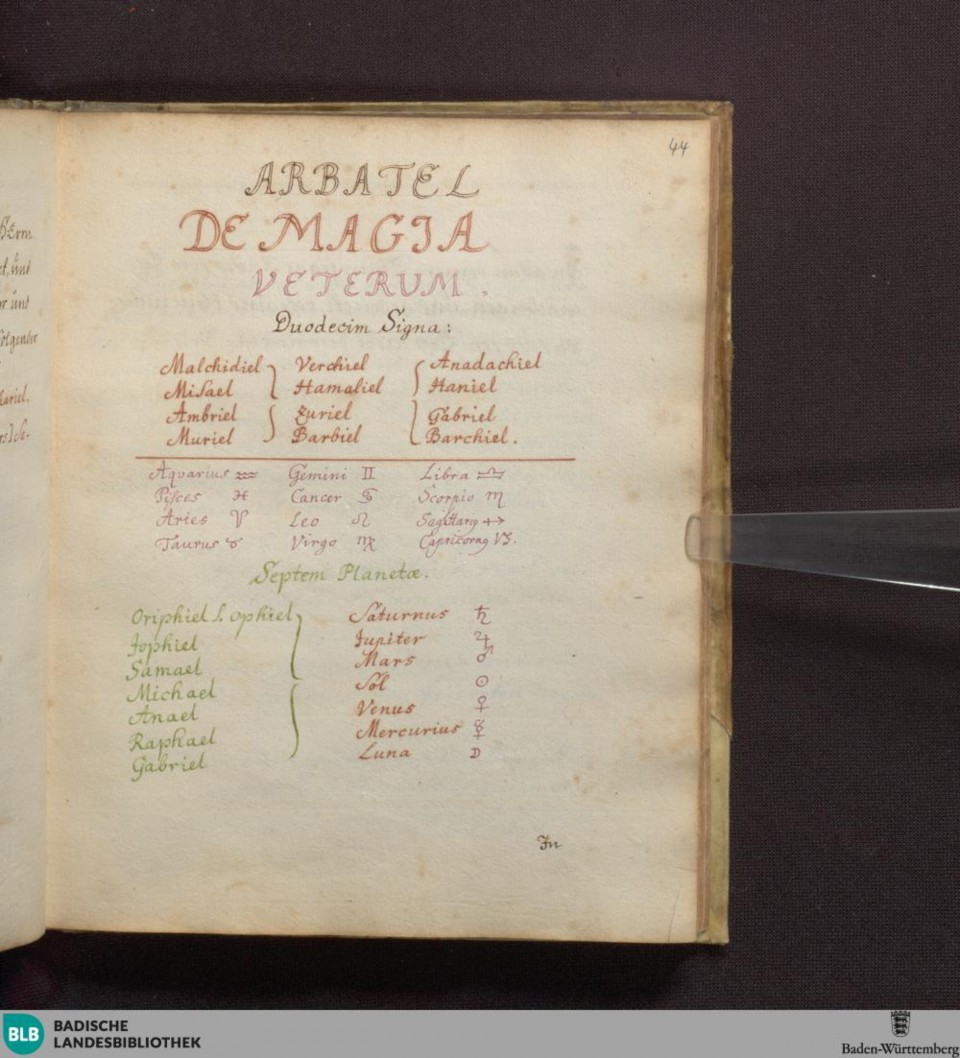 44
ARBATEL
DE MAGIA
VETERUM.
Duodecim Signa:
Malchidiel Verchiel Anadachiel
Misael Hamaliel Haniel
Ambriel Zuriel Gabriel
Muriel Barbiel Barchiel.
Aquarius ♒ Gemini ♊ Libra ♎
Pisces ♓ Cancer ♋ Scorpio ♏
Aries ♈ Leo ♌ Sagittary ♐
Taurus ♉ Virgo ♍ ♑.
Septem Planetæ.
Oriphiel s. Ophiel Saturnus ♄
Jophiel Jupiter ♃
Samael Mars ♂
Michael Sol ☉
Anael Venus ♀
Raphael Mercurius ☿
Gabriel Luna ☽
In
BLB BADISCHE
LANDESBIBLIOTHEK
Baden-Württemberg